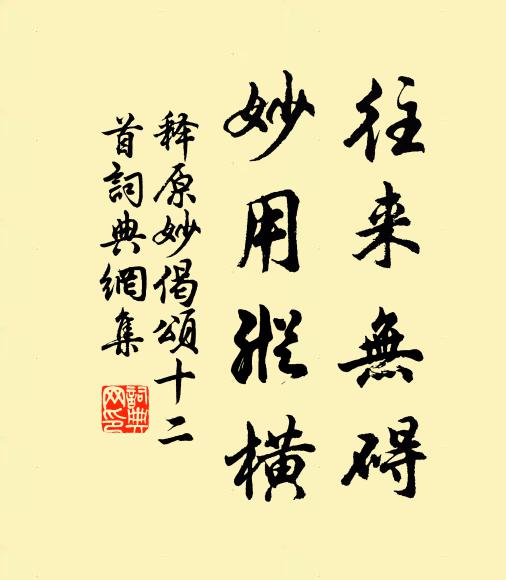 往来無碍
妙用縱横
释原妙偈頌十二
首詞典網集
詞典
网印